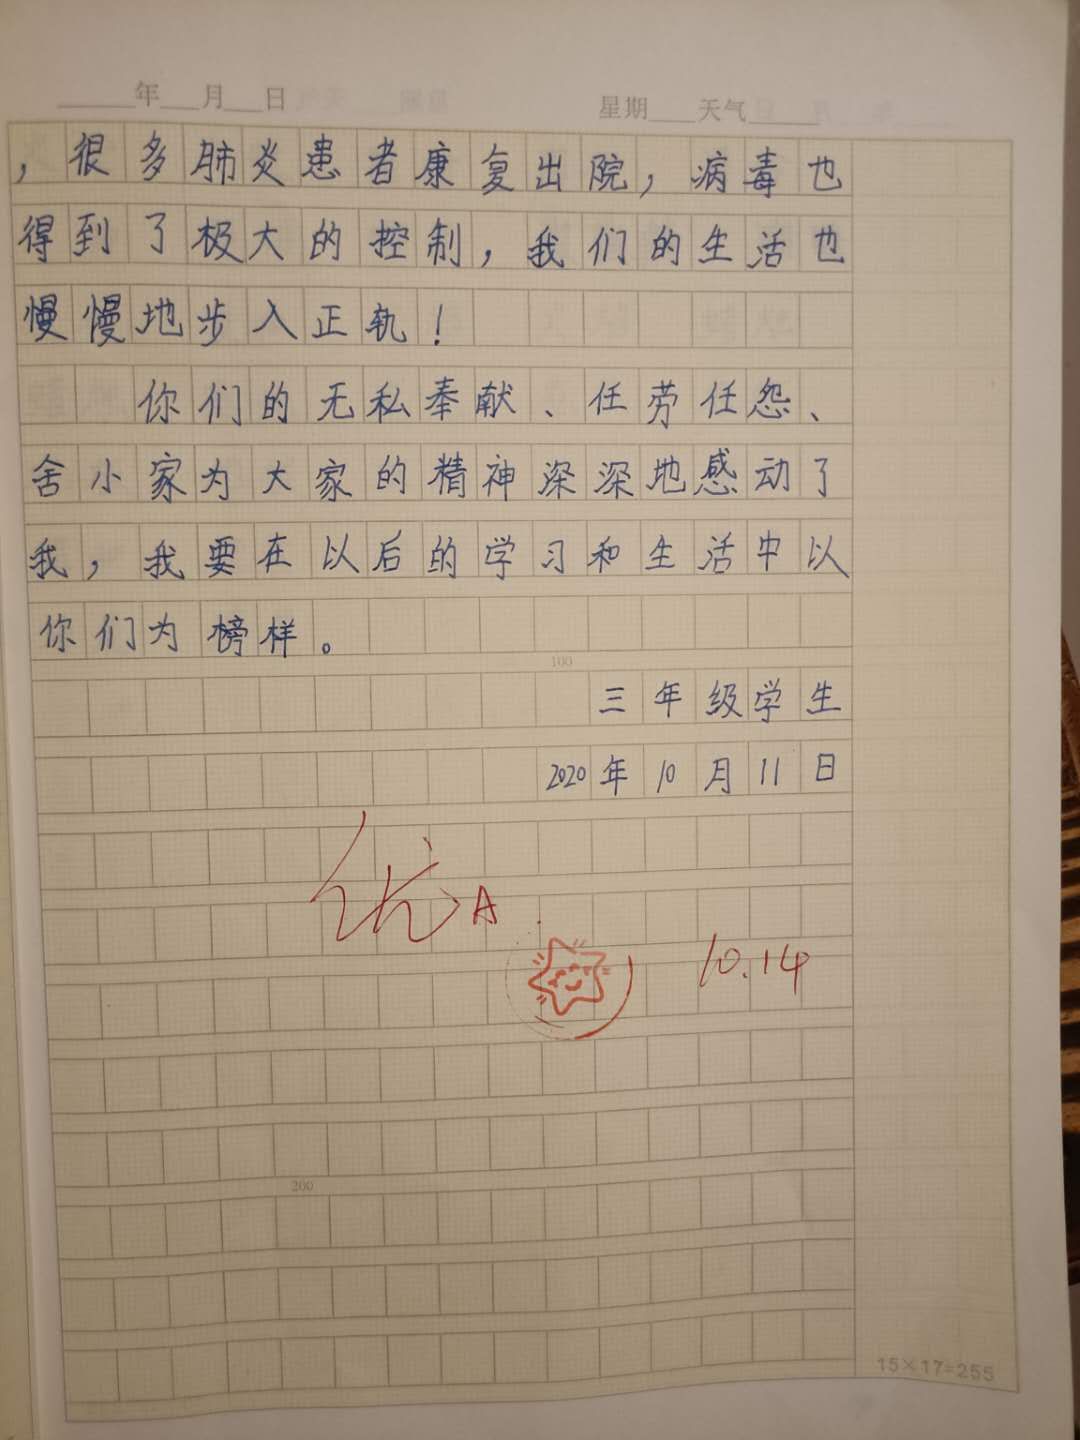 ____年___月___日 星期____天气______
，很多肺炎患者康复出院，病毒也
得到了极大的控制，我们的生活也
慢慢地步入正轨！
你们的无私奉献、任劳任怨、
舍小家为大家的精神深深地感动了
我，我要在以后的学习和生活中以
你们为榜样。
100
三年级学生
2020年10月11日
优A
10.14
200
15×17=255